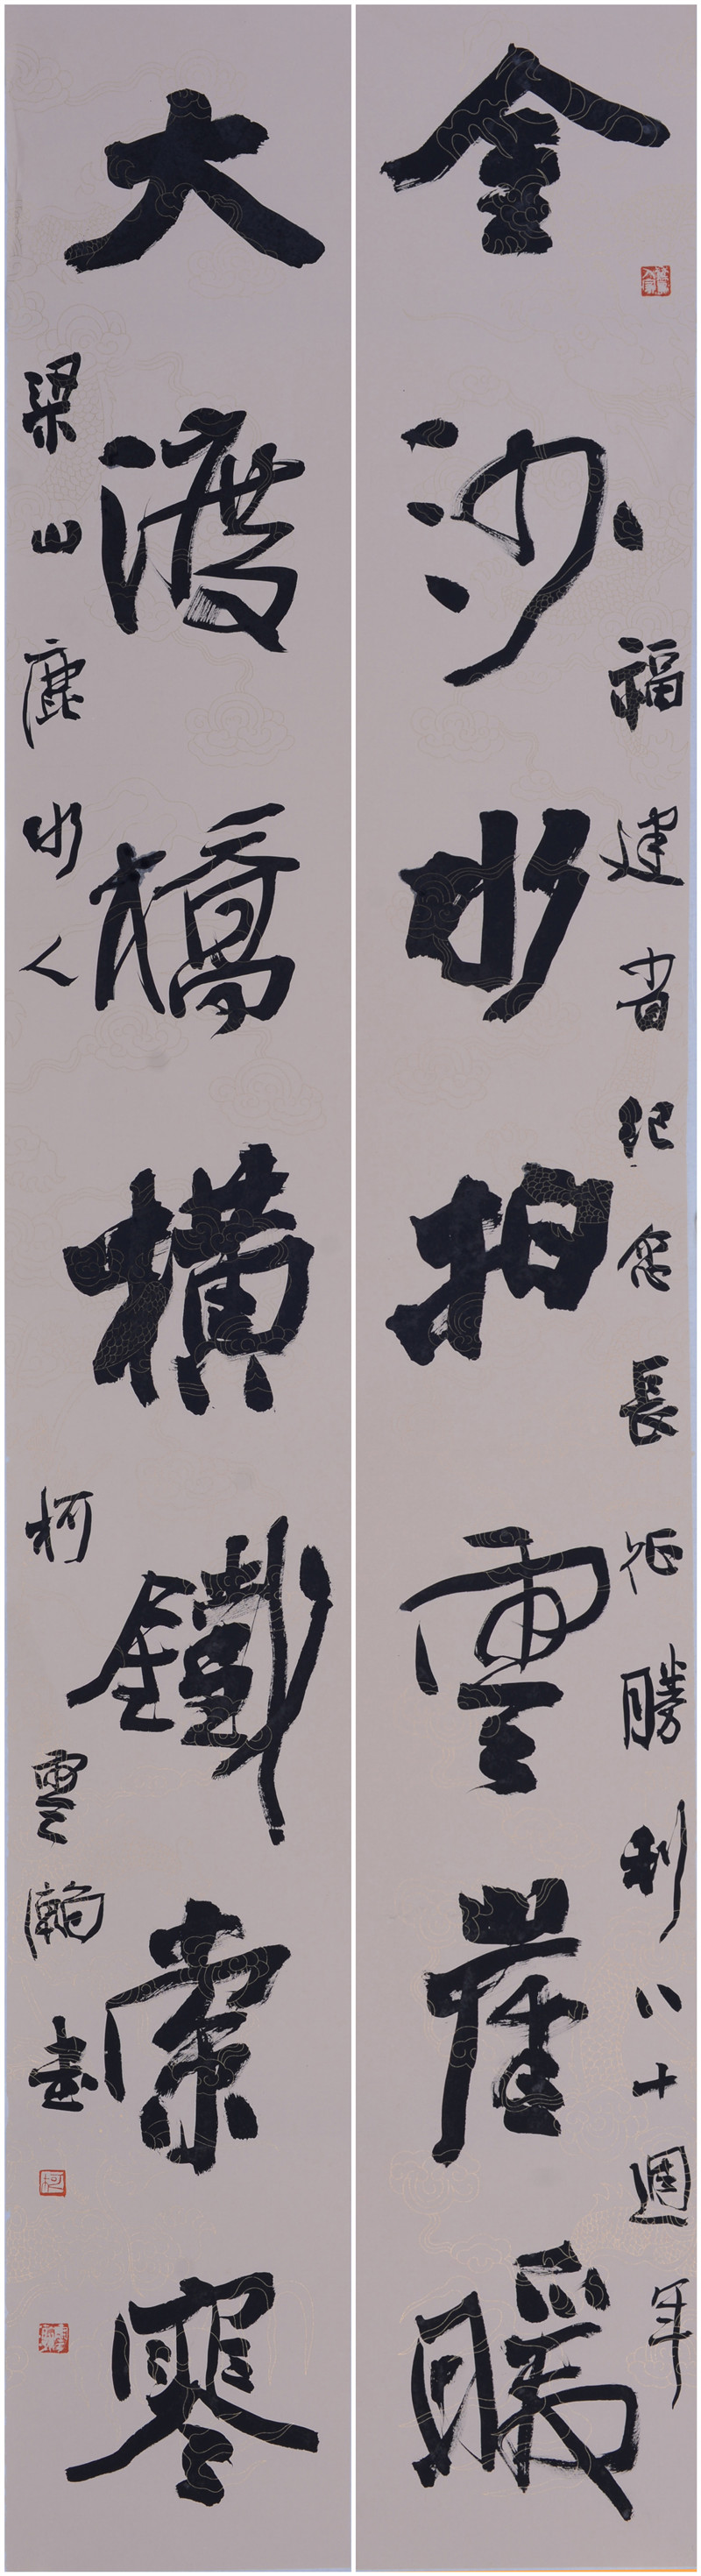 金沙水拍雲崖暖
福建省紀念長征勝利八十週年
大渡橋橫鐵索寒
梁山鹿水人
柯雲瀚書